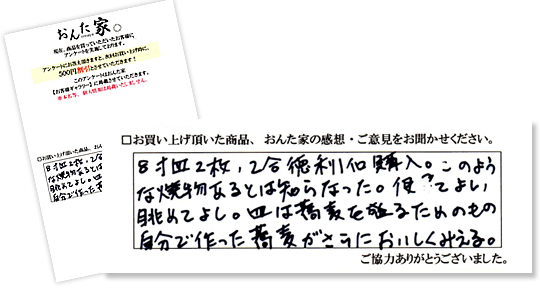 おんた家。
現在、商品を買っていただいたお客様に
アンケートを実施しております。
アンケートにお答え頂きますと、次回お買い上げ時に、
500円割引とさせていただきます!
このアンケートはおんた家
【お客様ギャラリー】に掲載させていただきます。
□お買い上げ頂いた商品、おんた家の感想・ご意見をお聞かせください。
8寸皿2枚,2合徳利他購入。このよう
な焼物あるとは知らなった。使ってよし,
眺めてよし。皿は蕎麦を盛るためのもの
自分で作った蕎麦がさらにおいしくみえる。
ご協力ありがとうございました。